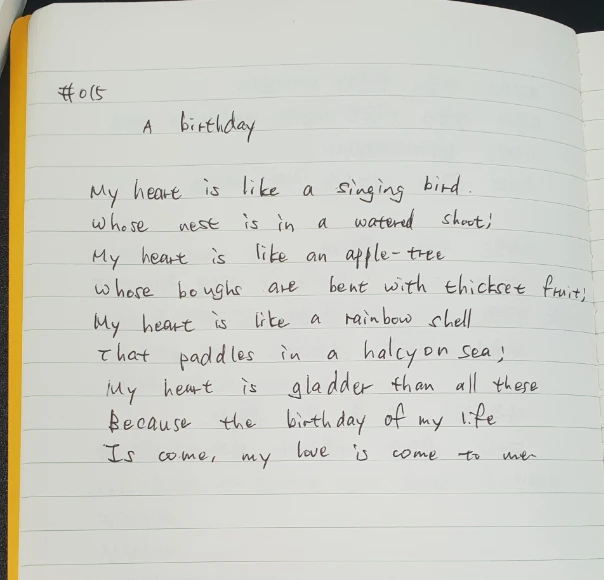 #015
A birthday
My heart is like a singing bird.
Whose nest is in a watered shoot;
My heart is like an apple-tree
Whose boughs are bent with thickset fruit;
My heart is like a rainbow shell
That paddles in a halcyon sea;
My heart is gladder than all these
Because the birthday of my life
Is come, my love is come to me